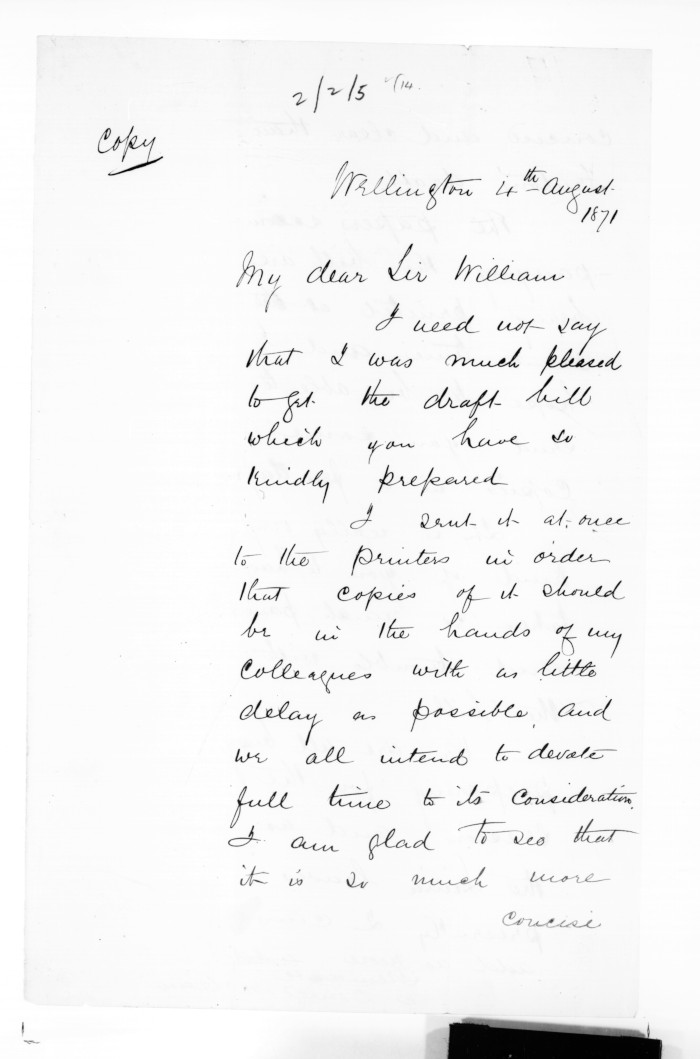 2/2/5 2/14
Copy
Wellington 4th August
1871
My dear Sir William
I need not say
that I was much pleased
to get the draft bill
which you have so
kindly prepared
I sent it at once
to the printers in order
that copies of it should
be in the hands of my
colleagues with as little
delay as possible and
we all intend to devote
full time to its consideration.
I am glad to see that
it is so much more
concise